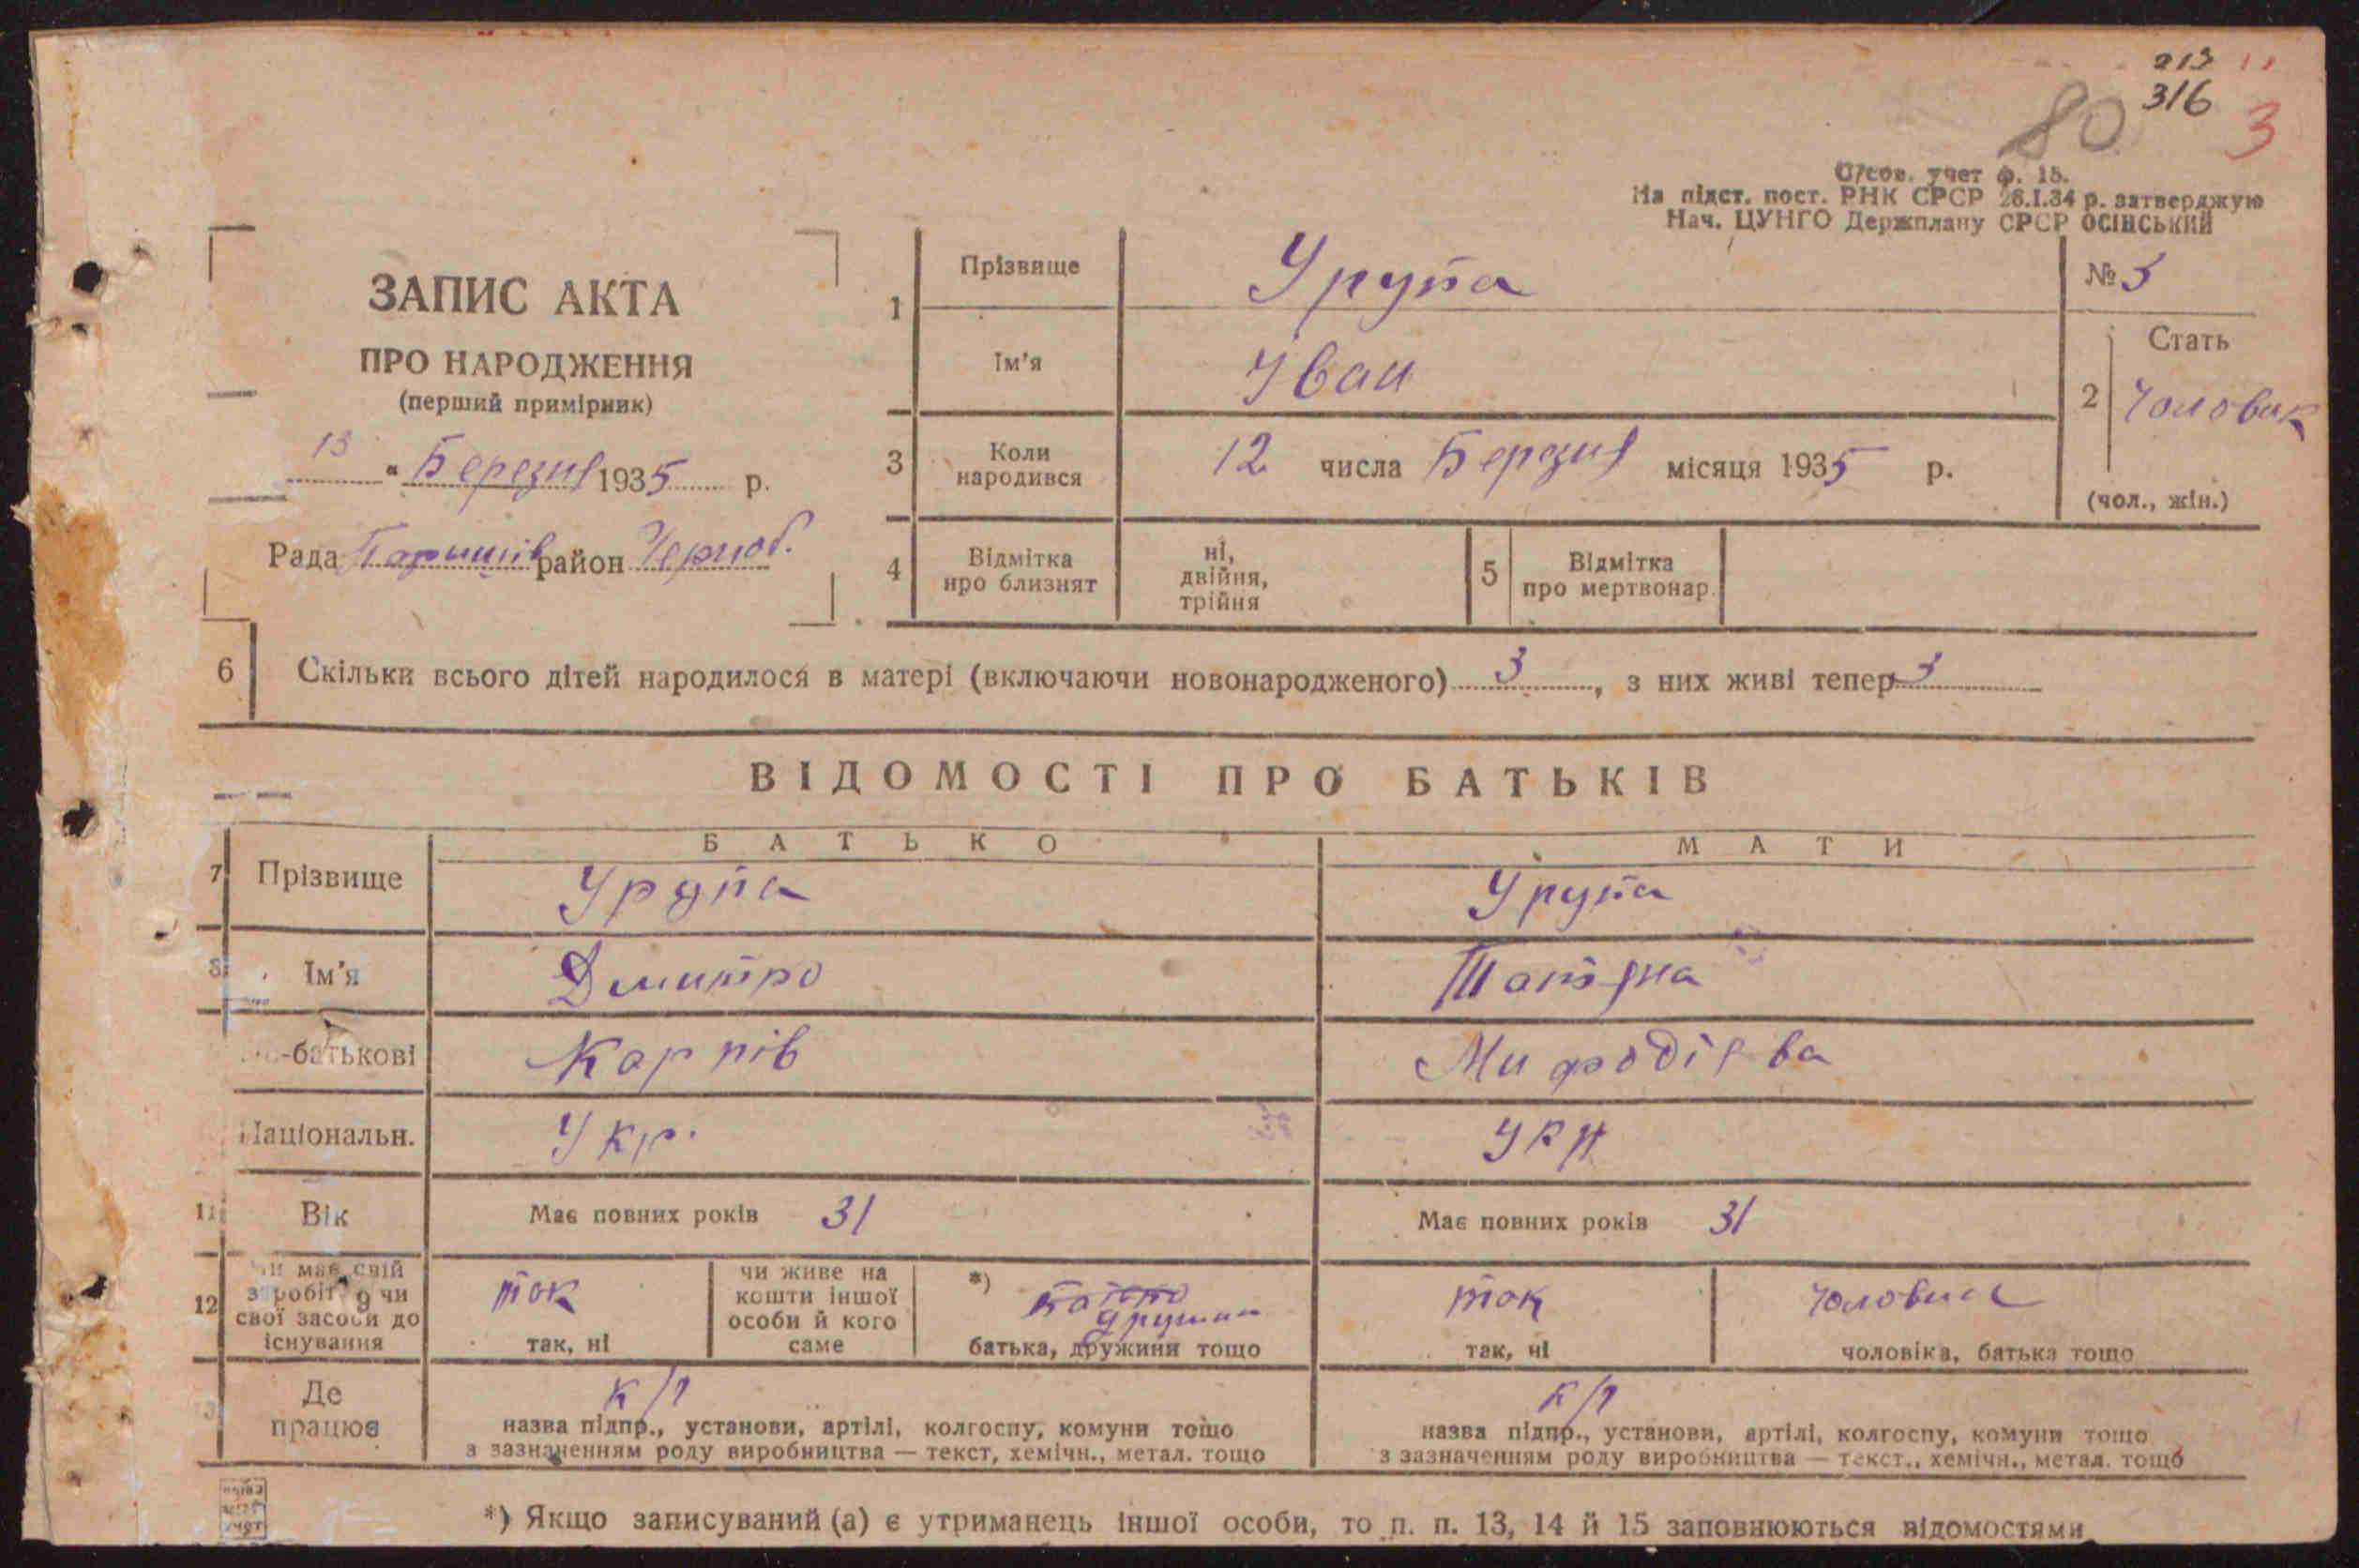 213 11
80 316 3
О/сов. учет ф. 15.
На підст. пост. РНК СРСР 26.I.34 р. затверджую
Нач. ЦУНГО Держплану СРСР ОСІНСЬКИЙ
ЗАПИС АКТА
ПРО НАРОДЖЕННЯ
(перший примірник)
13 " Березня 1935 р.
Рада Паришів район Чорноб.
1 Прізвище Урупа
Ім'я Іван
№ 3
2 Стать
Чоловік
(чол., жін.)
3 Коли народився 12 числа Березня місяця 1935 р.
4 Відмітка про близнят ні, двійня, трійня
5 Відмітка про мертвонар.
6 Скільки всього дітей народилося в матері (включаючи новонародженого) 3, з них живі тепер 3
ВІДОМОСТІ ПРО БАТЬКІВ
БАТЬКО МАТИ
7 Прізвище Урупа Урупа
8 Ім'я Дмитро Татяна
-батькові Карпів Мифодієва
Національн. Укр. Укр
11 Вік Має повних років 31 Має повних років 31
12 Чи має свій заробіток чи свої засоби до існування
так
так, ні
чи живе на кошти іншої особи й кого саме
*) дружини
батька, дружини тощо
так
так, ні
чоловіка, батька тощо
Де працює
к/г
назва підпр., установи, артілі, колгоспу, комуни тощо
з зазначенням роду виробництва — текст, хемічн., метал. тощо
к/г
назва підпр., установи, артілі, колгоспу, комуни тощо
з зазначенням роду виробництва — текст., хемічн., метал. тощо
*) Якщо записуваний (а) є утриманець іншої особи, то п. п. 13, 14 й 15 заповнюються відомостями